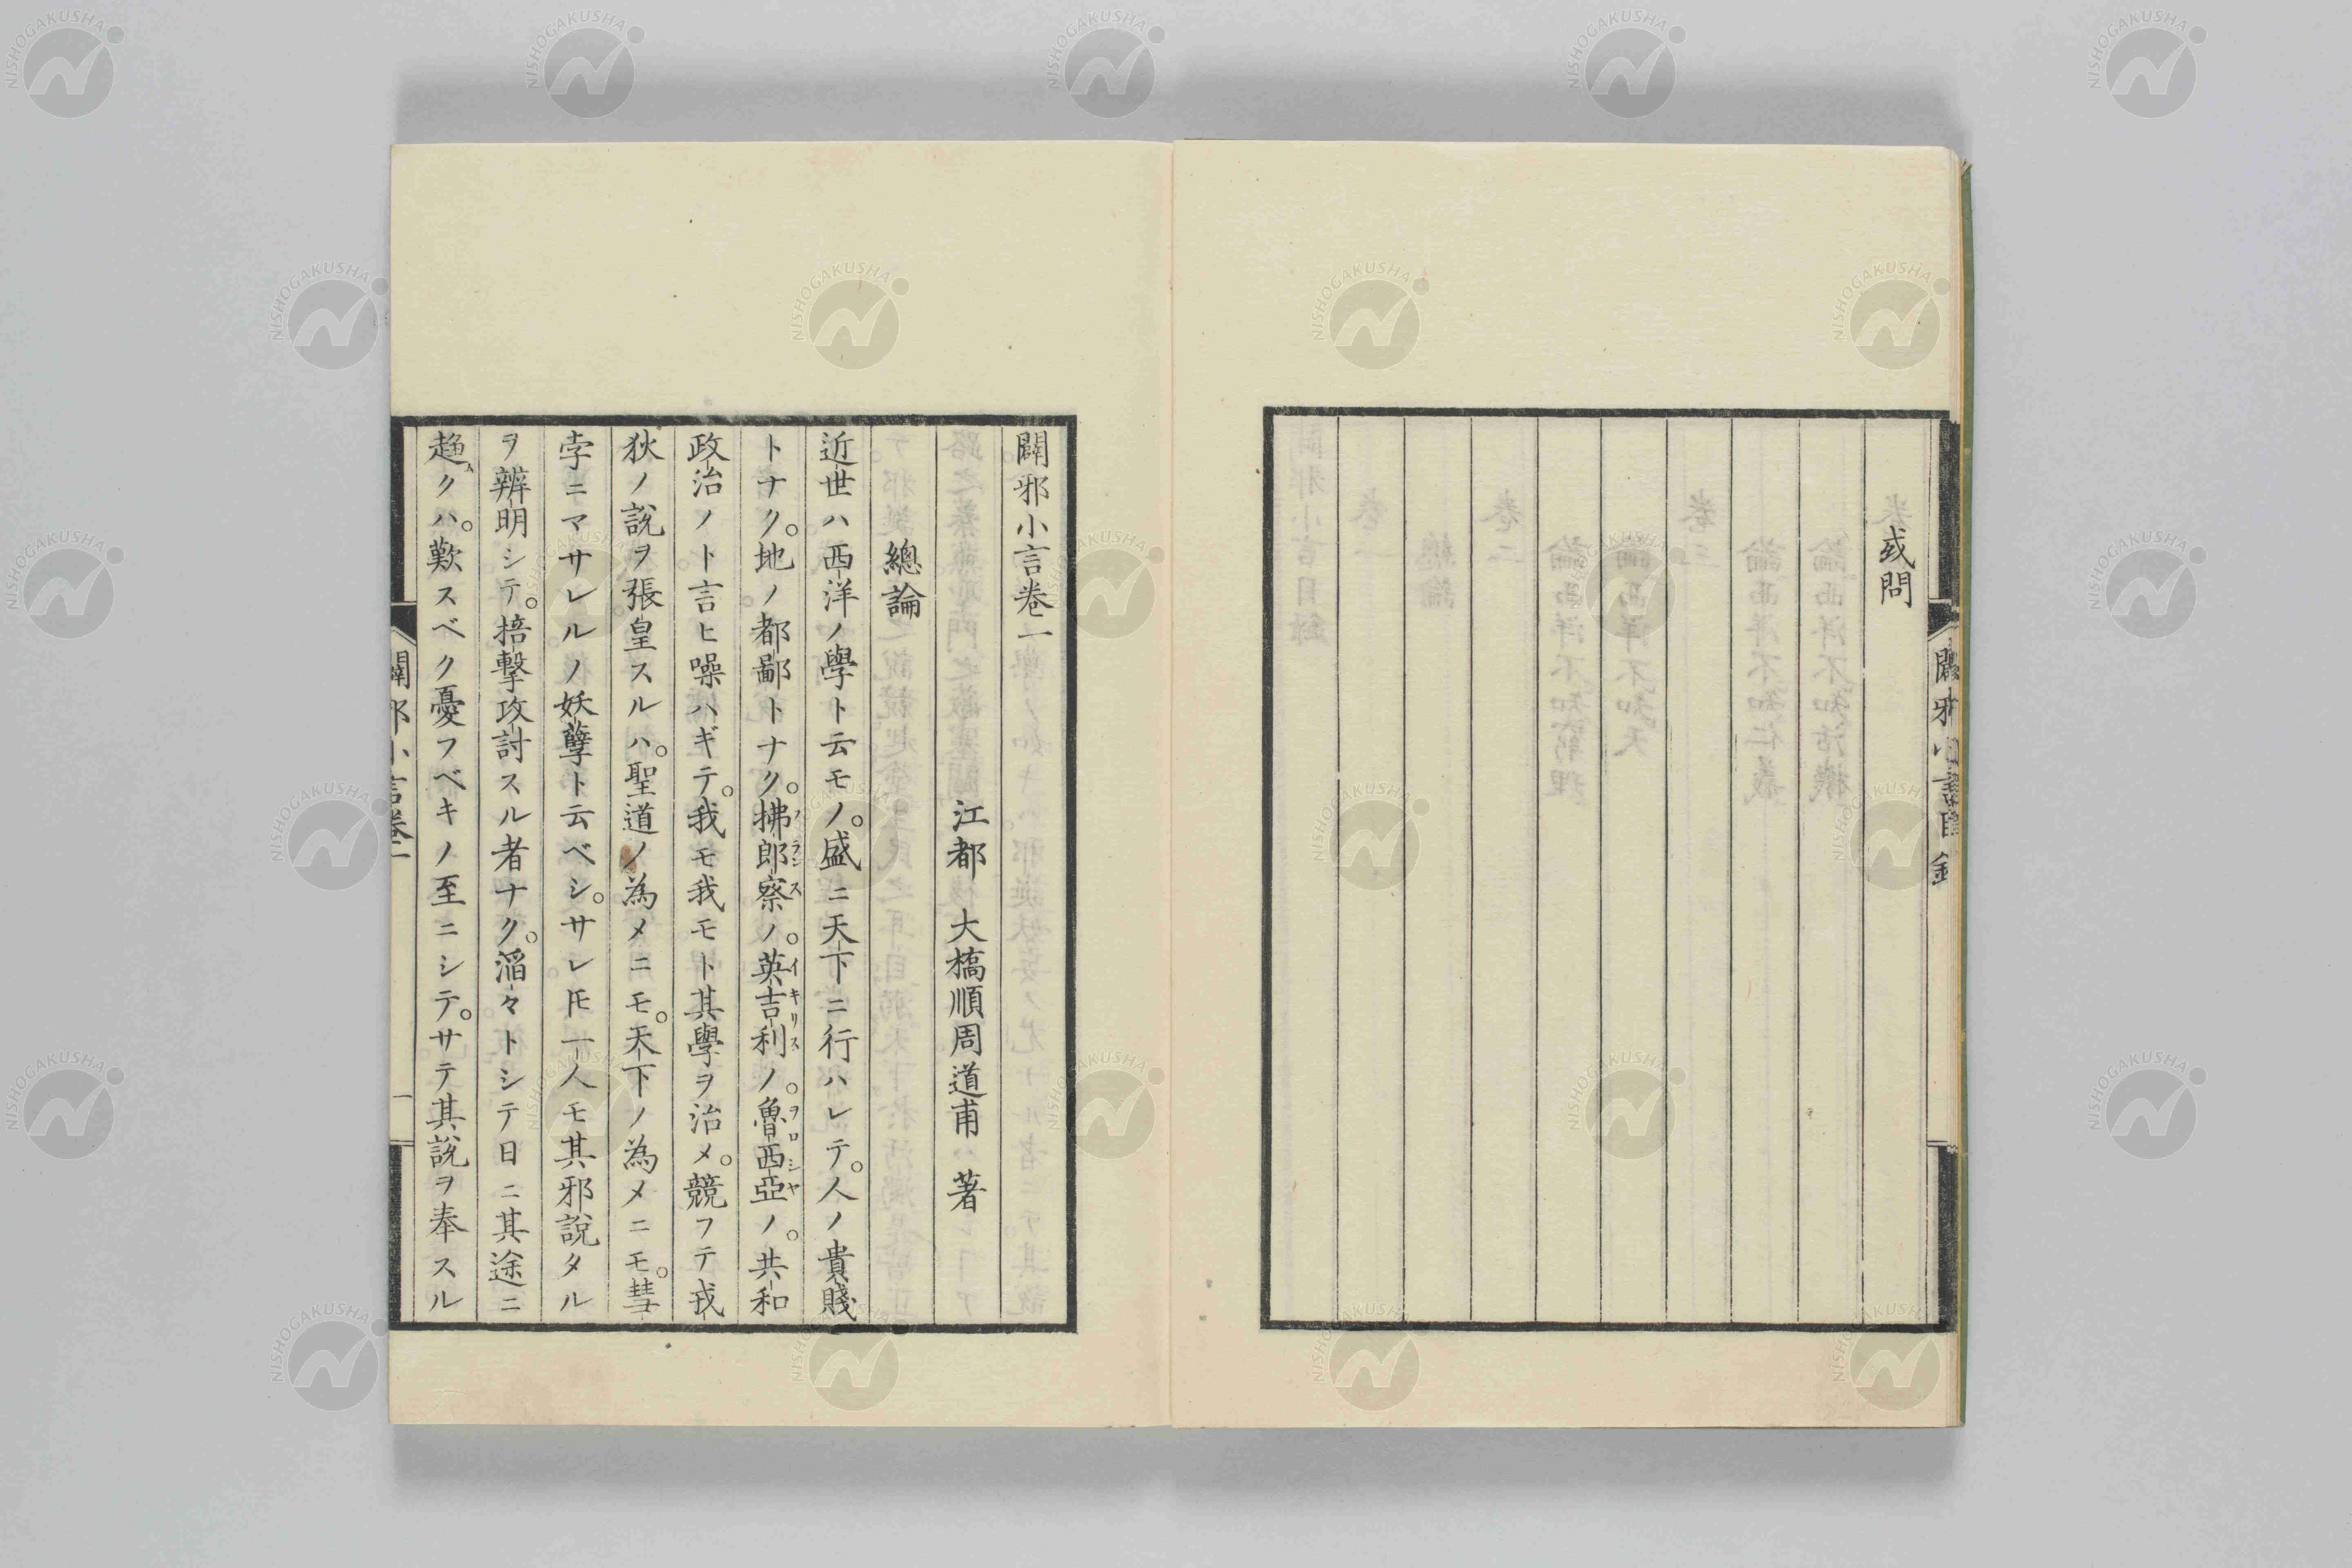 或問
闢邪小言目錄
闢邪小言卷一
江都 大橋順周道甫 著
總論
近世ハ西洋ノ學ト云モノ。盛ニ天下ニ行ハレテ。人ノ貴賤
トナク。地ノ都鄙トナク。拂郎察ノ。英吉利ノ。魯西亞ノ。共和
フランス イキリス ヲロシヤ
政治ノト言ヒ噪ハギテ。我モ我モト其學ヲ治メ。競フテ戎
狄ノ說ヲ張皇スルハ。聖道ノ為メニモ。天下ノ為メニモ。彗
孛ニマサレルノ妖孽ト云ベシ。サレ𪜈一人モ其邪說タル
ヲ辨明シテ。掊擊攻討スル者ナク。滔々トシテ日ニ其途ニ
趨ムクハ。歎スベク憂フベキノ至ニシテ。サテ其說ヲ奉スル
闢邪小言卷一
一